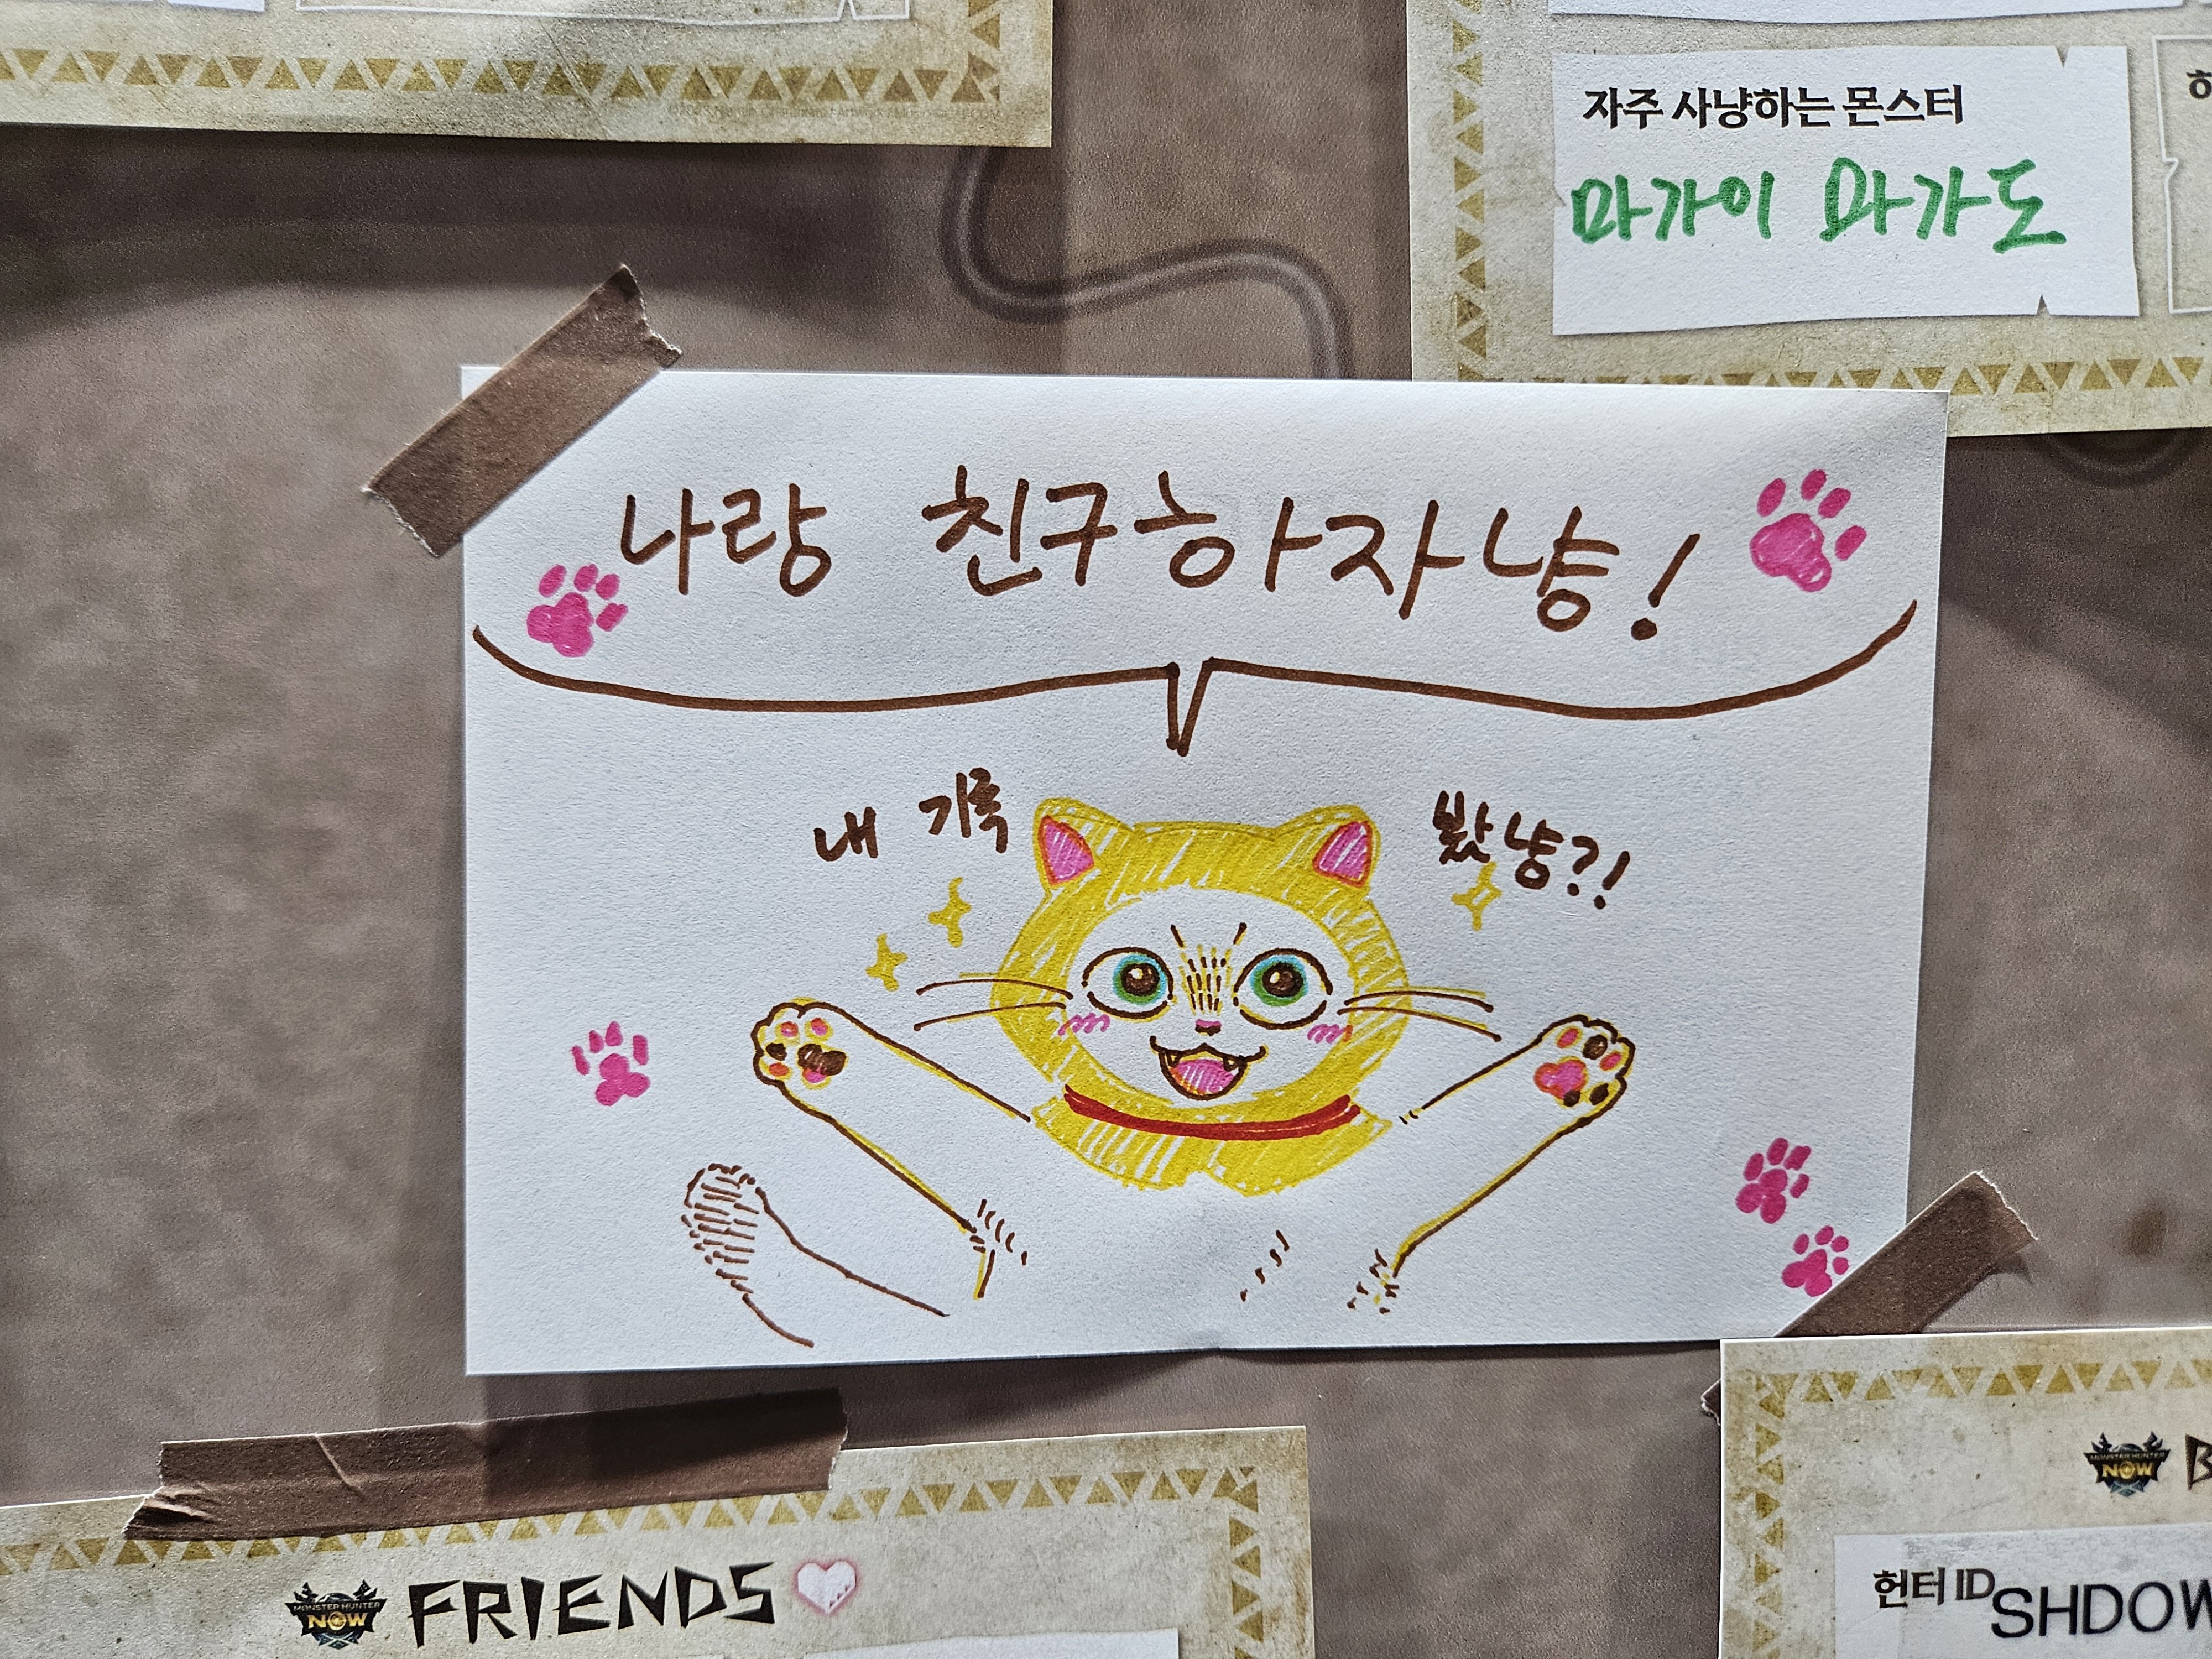 자주 사냥하는 몬스터
마가이 마가도
나랑 친구하자냥!
내 기록 봤냥?!
MONSTER HUNTER
NOW
FRIENDS
MONSTER HUNTER
NOW
헌터 ID
SHDOW